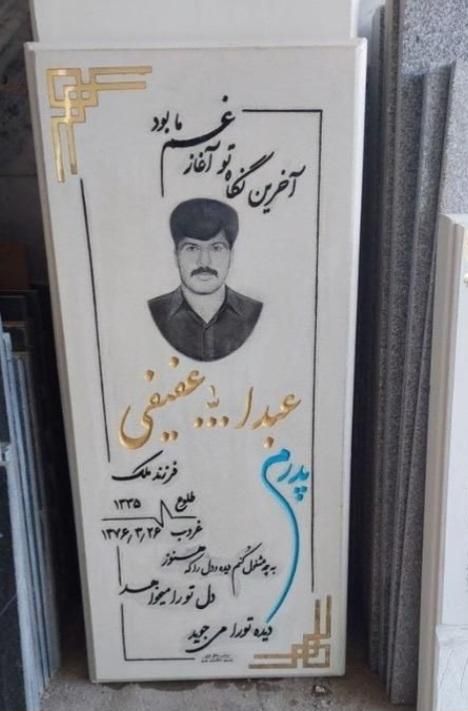 آخرین نگاه تو آغاز غم ما بود
عبدا... عفیفی
پدرم
فرزند ملک
طلوع ۱۳۳۵
غروب ۱۳۷۶٫۳٫۲۶
به چه مشغول کنم دیده و دل را که هنوز
دل تو را میخواهد
دیده تو را می جوید